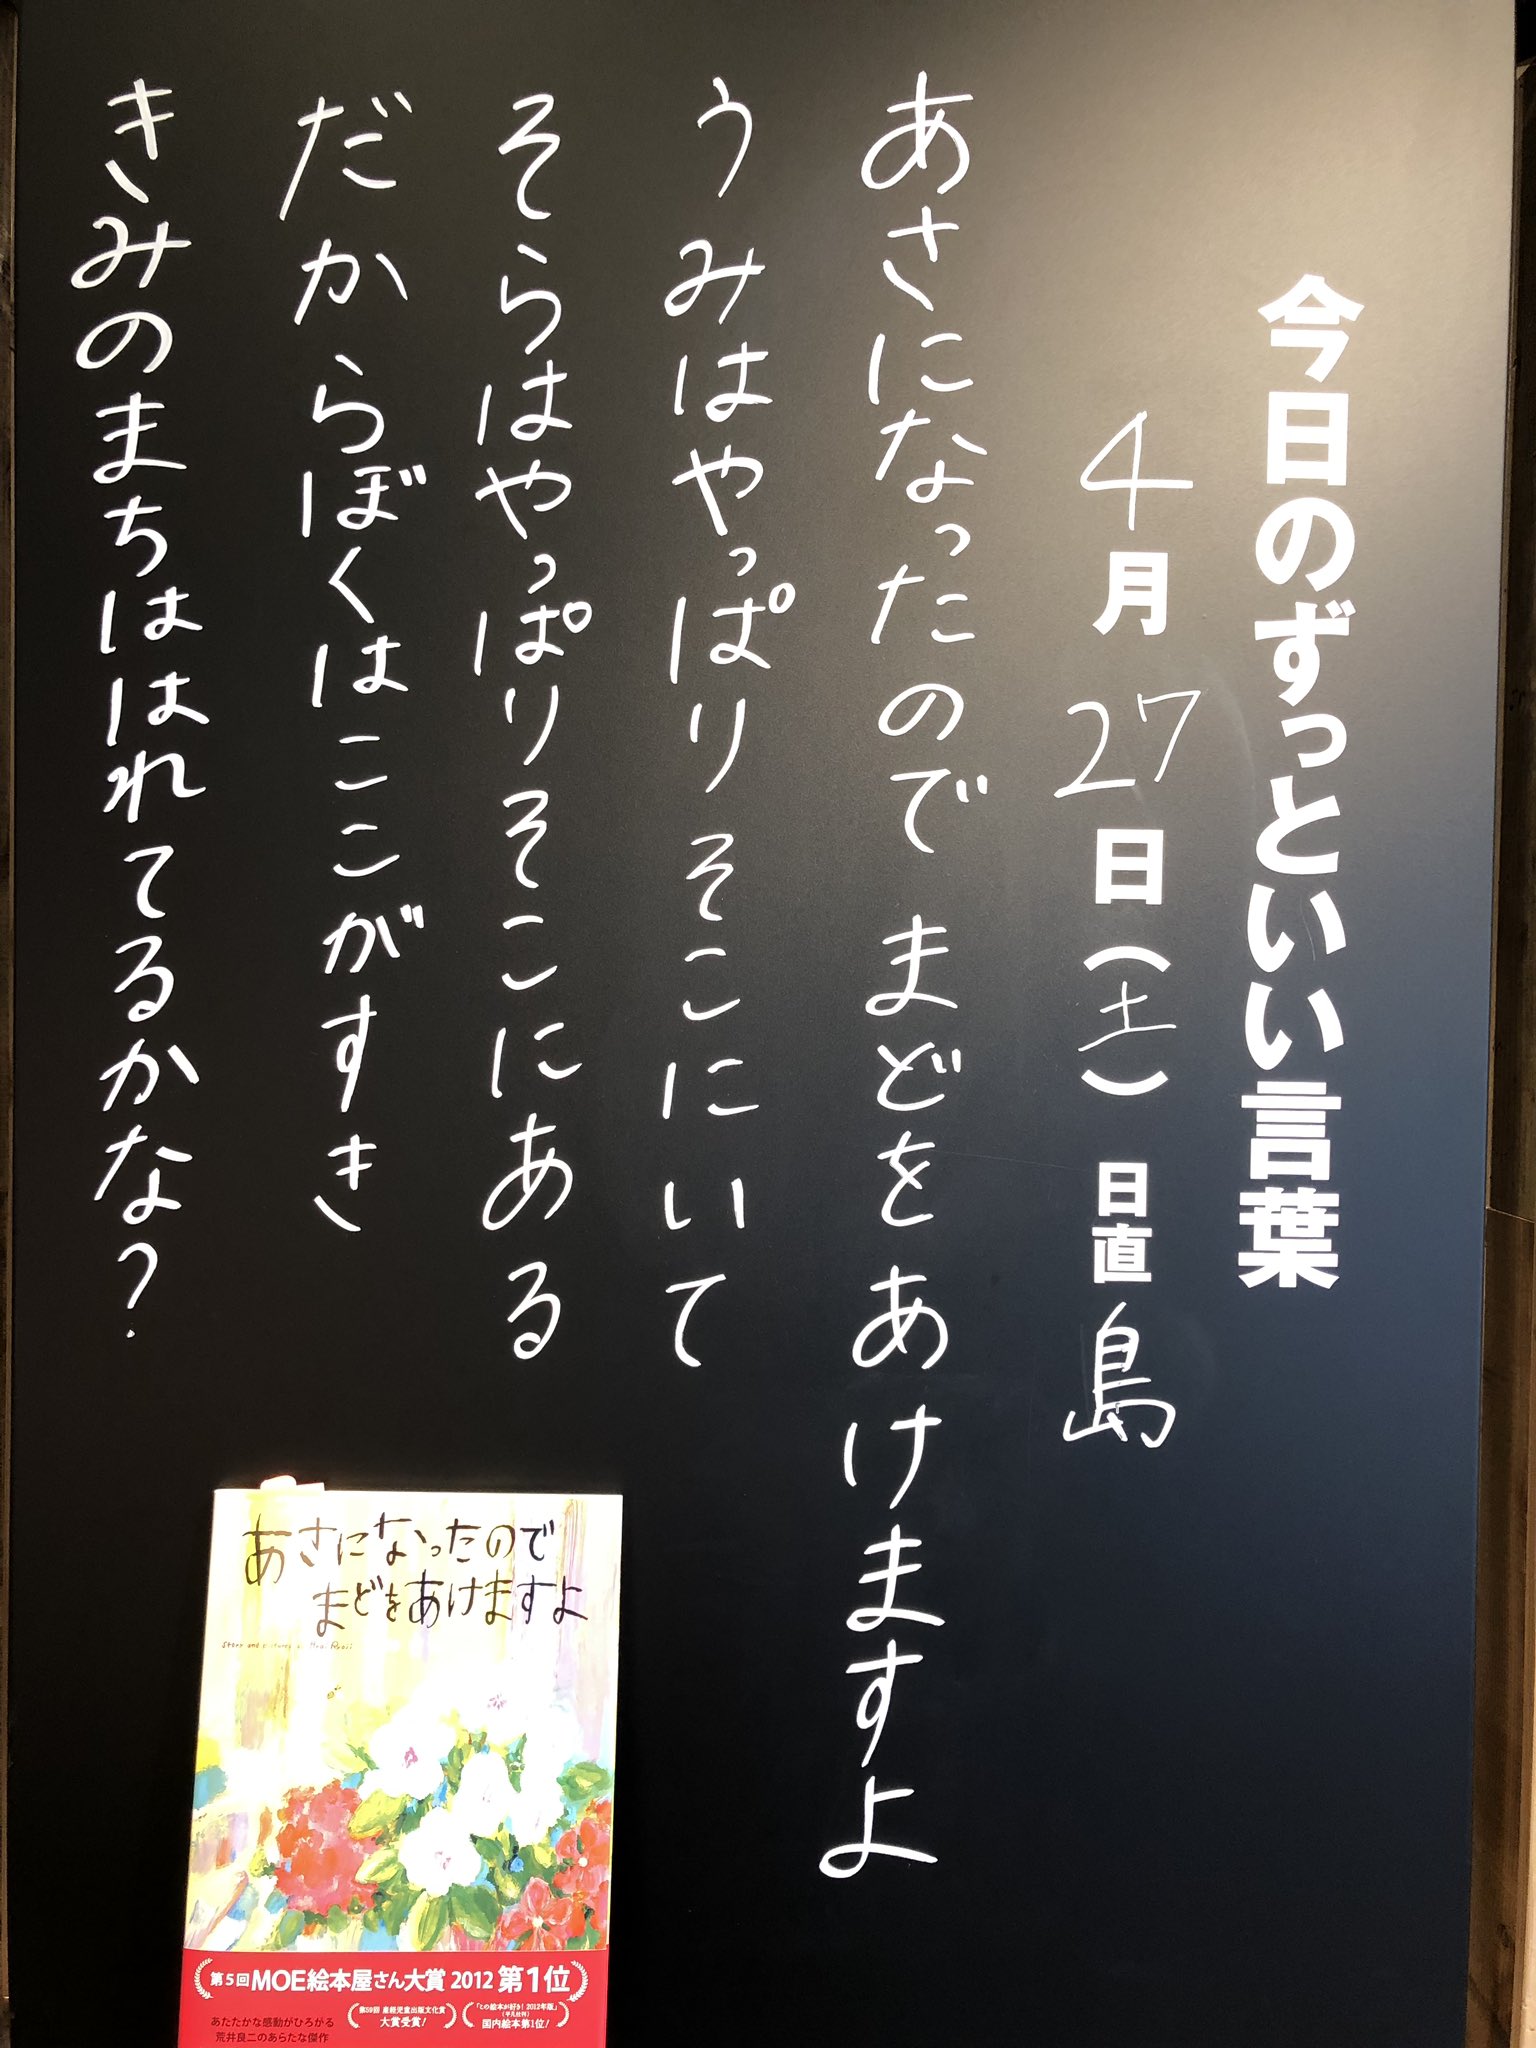 今日のずっといい言葉
4月27日(土) 日直 島
あさになったのでまどをあけますよ
うみはやっぱりそこにいて
そらはやっぱりそこにある
だからぼくはここがすき
きみのまちははれてるかな?
あさになったので
まどをあけますよ
第5回 MOE絵本屋さん大賞 2012 第1位
第59回 産経児童出版文化賞
大賞受賞!
「この絵本が好き! 2012年版」
(平凡社刊)
国内絵本第1位!
あたたかな感動がひろがる
荒井良二のあらたな傑作